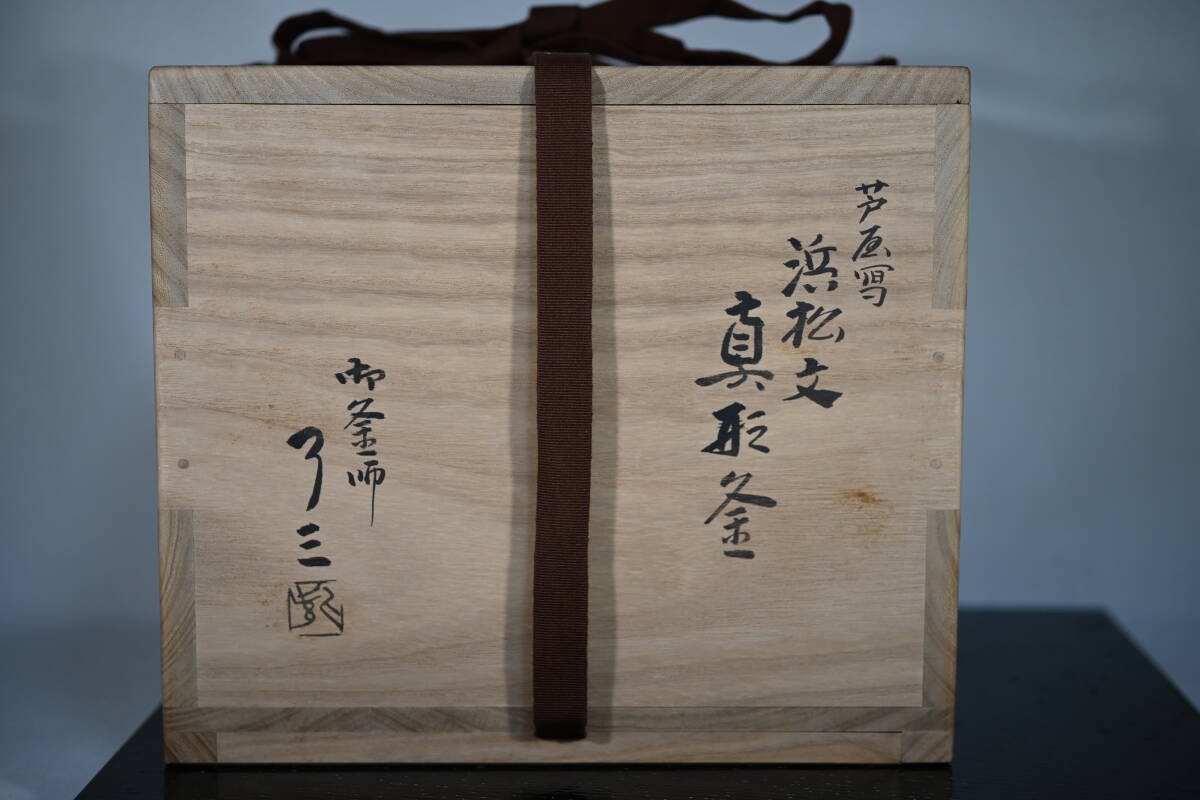 芦屋写
浜松文
真形釜
御釜師
了三